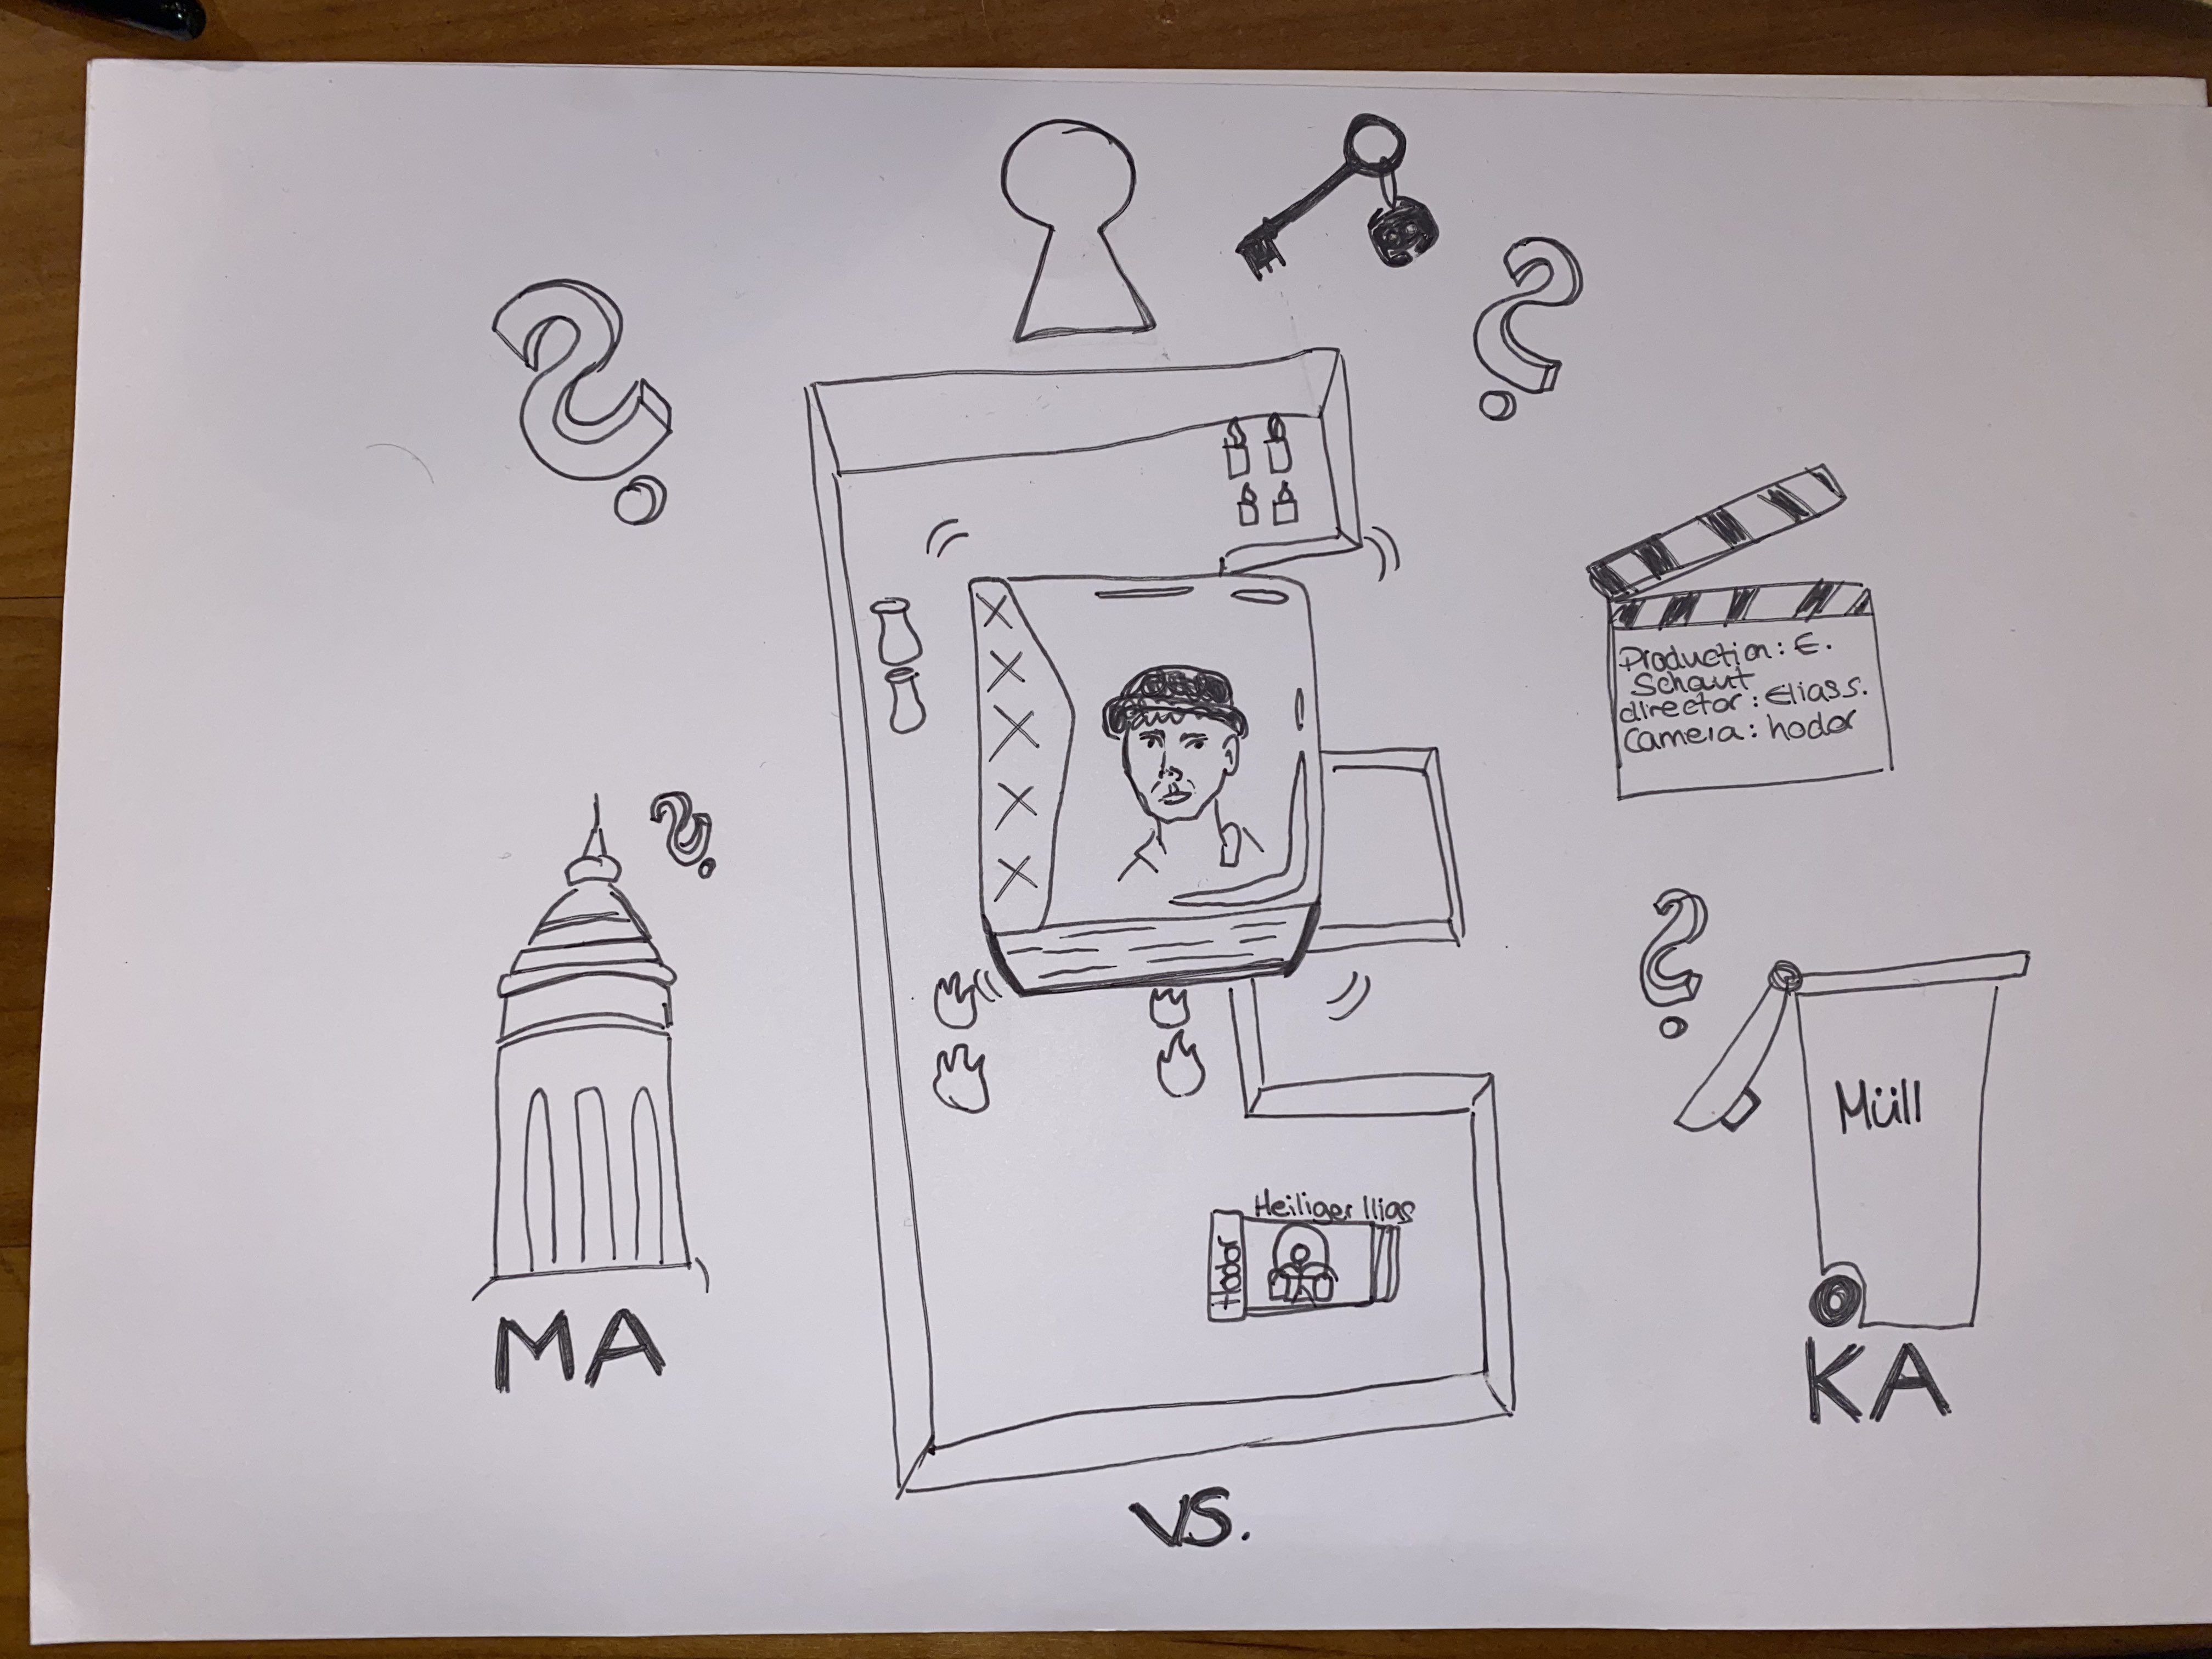 Production: E.
Schaut
director: Elias s.
Camera: hodor
Müll
Heiliger Ilias
Hodor
MA
KA
VS.